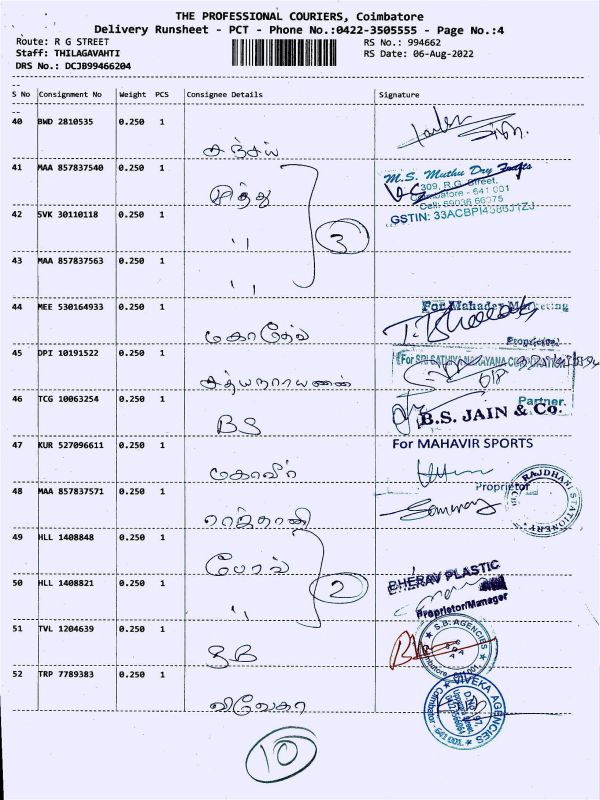 THE PROFESSIONAL COURIERS, Coimbatore
Delivery Runsheet - PCT - Phone No.:0422-3505555 - Page No.:4
Route: R G STREET RS No.: 994662
Staff: THILAGAVAHTI RS Date: 06-Aug-2022
DRS No.: DCJB99466204
S No Consignment No Weight PCS Consignee Details Signature
40 BWD 2810535 0.250 1
சஞ்சய்
41 MAA 857837540 0.250 1
முத்து
M.S. Muthu Dry Fruits
309, R.G. Street,
Coimbatore - 641 001
Cell: 59036 66075
42 SVK 30110118 0.250 1
GSTIN: 33ACBPI4385J1ZJ
" 3
43 MAA 857837563 0.250 1
"
44 MEE 530164933 0.250 1 For Mahadev Marketing
மகாதேவ் Proprietor
45 DPI 10191522 0.250 1 For SRI SATHIYANARAYANA CORPORATION
சத்யநாராயணன்
46 TCG 10063254 0.250 1 Partner.
BS B.S. JAIN & Co.
47 KUR 527096611 0.250 1 For MAHAVIR SPORTS
மகாவீர்
Proprietor
48 MAA 857837571 0.250 1
RAJDHANI STATIONERY
ராஜ்தானி
49 HLL 1408848 0.250 1
பேரவ்
BHERAV PLASTIC
50 HLL 1408821 0.250 1
" 2
Proprietor/Manager
51 TVL 1204639 0.250 1
S.B. AGENCIES
SB
52 TRP 7789383 0.250 1
VIVEKA AGENCIES
Coimbatore - 641 001.
விவேகா
10